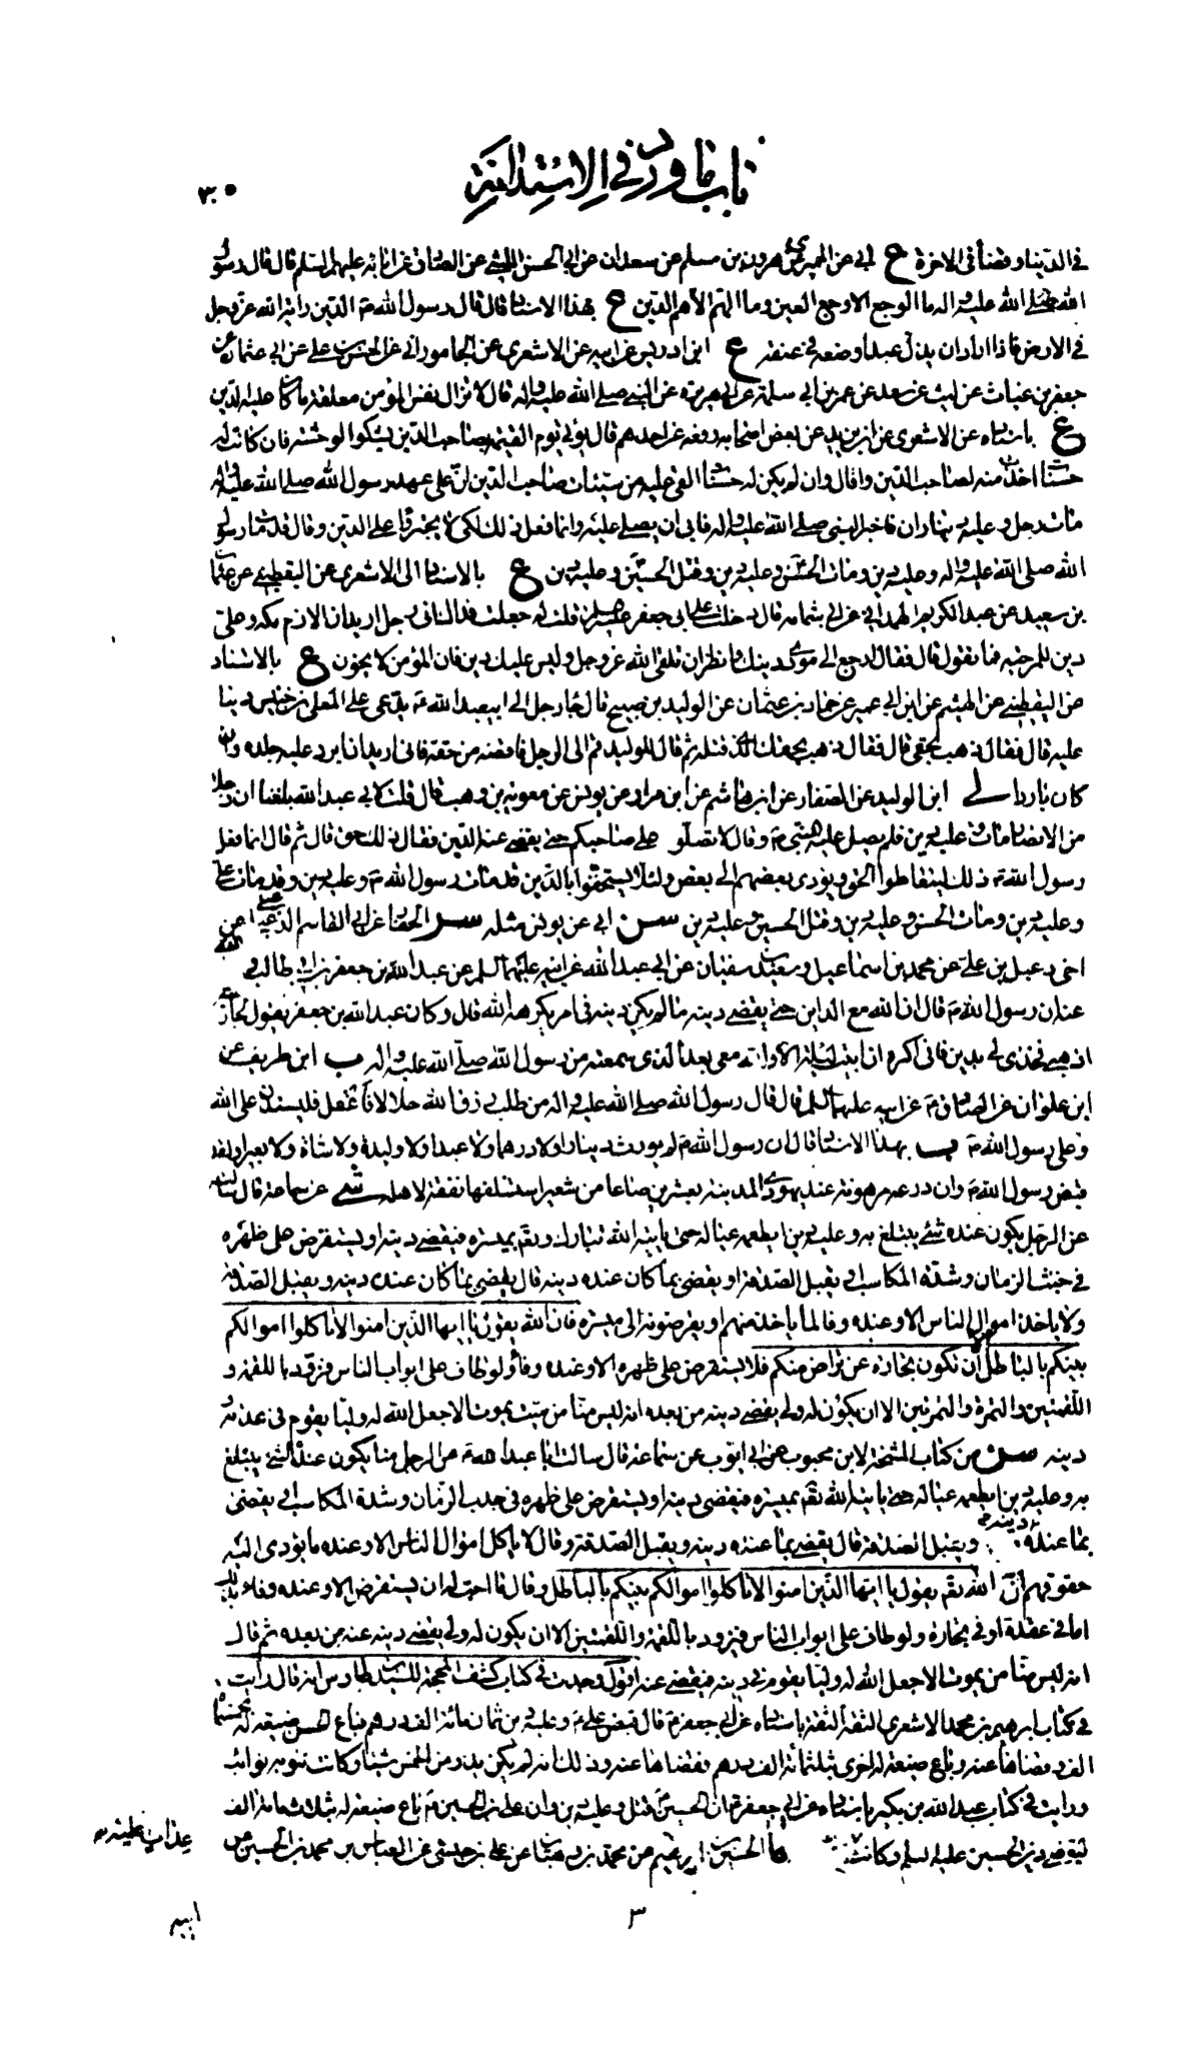 باب ما ورد فى الاستدانة
٣٠
فى الدنيا وقضاء فى الاخرة ع ابى عن الحميرى عن هرون بن مسلم عن سعدان عن ابى الحسن الليثى عن الصادق عن ابائه عليهم السلم قال قال رسول
الله صلى الله عليه واله ما الوجع الا وجع العين وما الهم الا هم الدين ع بهذا الاسناد قال قال رسول الله ص الدين راية الله عز وجل
فى الارض فاذا اراد ان يذل عبدا وضعه فى عنقه ع ابن ادريس عن ابيه عن الاشعرى عن الجامورانى عن الحسن بن على عن ابى عثمان عن
جعفر بن غياث عن ليث عن سعد عن عمر بن ابى سلمة عن ابى هريرة عن النبى صلى الله عليه واله قال لا تزال نفس المؤمن معلقة ما كان عليه الدين
ع باسناده عن الاشعرى عن ابن يزيد عن بعض اصحابه رفعه عن احدهم قال يؤتى يوم القيمة بصاحب الدين يشكو الوحشة فان كانت له
حسنات اخذت منه لصاحب الدين وقال وان لم يكن له حسنات القى عليه من سيئات صاحب الدين على عهد رسول الله صلى الله عليه واله
مات رجل وعليه ديناران فاخبر النبى صلى الله عليه واله فابى ان يصلى عليه وانما فعل ذلك لكى لا يجترؤا على الدين وقال قد مات رسول
الله صلى الله عليه واله وعليه دين ومات الحسن وعليه دين وقتل الحسين وعليه دين ع بالاسناد الى الاشعرى عن اليقطينى عن عثمان
بن سعيد عن عبد الكريم الهمدانى عن ابى ثمامه قال دخلت على ابى جعفر عليه السلم فقلت له جعلت فداك انى رجل اريد ان الازم مكه وعلى
دين للمرجئه فما تقول قال فقال ارجع الى مودى دينك وانظر ان تلقى الله عز وجل وليس عليك دين فان المؤمن لا يخون ع بالاسناد
عن اليقطينى عن الهيثم عن ابن ابى عمير عن حماد بن عثمان عن الوليد بن صبيح قال جاء رجل الى ابيعبد الله ع يدعى على المعلى بن خنيس دينا
عليه قال فقال ذهب بحقى قال فقال ذهب بحقك الذى قتله ثم قال للوليد قم الى الرجل فاقضه من حقه فانى اريد ان ابرد عليه جلده وان
كان باردا لى ابن الوليد عن الصفار عن ابن هاشم عن ابن مرار عن يونس عن معوية بن وهب قال قلت لابى عبد الله بلغنا ان رجلا
من الانصار مات وعليه دين فلم يصل عليه النبى ص وقال لا تصلوا على صاحبكم حتى يقضى عنه الدين فقال ذلك حق قال ثم قال انما فعل
رسول الله ص ذلك ليتعاطوا الحق ويؤدى بعضهم الى بعض ولئلا يستخفوا بالدين قد مات رسول الله ص وعليه دين وقد مات على
وعليه دين ومات الحسن وعليه دين وقتل الحسين وعليه دين سن ابى عن يونس مثله سر الحفار عن ابى القاسم الدعبلى عن
اخى دعبل بن على عن محمد بن اسماعيل وسعيد بن سفيان عن ابى عبد الله عن ابيه عليهما السلم عن عبد الله بن جعفر بن ابى طالب
عنه ان رسول الله ص قال ان الله مع الداين حتى يقضى دينه ما لم يكن دينه فى امر يكرهه الله قال وكان عبد الله بن جعفر يقول لجازنه
اذهب فخذ لى بدين فانى اكره ان ابيت ليلة الا والله معى بعد الذى سمعته من رسول الله صلى الله عليه واله ب ابن طريف عن
ابن علوان عن الصادق ع عن ابيه عليهما السلم قال قال رسول الله صلى الله عليه واله من طلب رزق الله حلالا فاغفل فليستدن على الله
وعلى رسول الله ص ب بهذا الاسناد قال ان رسول الله ص لم يورث دينارا ولا درهما ولا عبدا ولا وليدة ولا شاة ولا بعيرا ولقد
قبض رسول الله ص وان درعه مرهونة عند يهودى المدينة بعشرين صاعا من شعير استسلفها نفقة لاهله شى عن سماعة قال سالته
عن الرجل يكون عنده شئ يتبلغ به وعليه دين ايطعمه عياله حتى ياتيه الله تبارك وتعم بميسرة فيقضى دينه او يستقرض على ظهره
فى خبث الزمان وشدة المكاسب او يقبل الصدقة او يقضى بما كان عنده دينه قال يقضى بما كان عنده دينه ويقبل الصدقة
ولا ياخذ اموال الناس الا وعنده وفاء لما ياخذ منهم او يقرضونه الى ميسرة فان الله يقول يا ايها الذين امنوا لا تاكلوا اموالكم
بينكم بالباطل الا ان تكون تجارة عن تراض منكم فلا يستقرض على ظهره الا وعنده وفاء ولو طاف على ابواب الناس فزودوه باللقمة و
اللقمتين والتمرة والتمرتين الا ان يكون له ولى يقضى دينه من بعده انه ليس منا من ميت يموت الا جعل الله له وليا يقوم فى عدته
دينه سر من كتاب المشيخة لابن محبوب عن ابى ايوب عن سماعة قال سالت ابا عبد الله ع عن الرجل منا يكون عنده الشئ يتبلغ
به وعليه دين ايطعمه عياله حتى ياتيه الله تعم بميسرة فيقضى دينه او يستقرض على ظهره فى جدب الزمان وشدة المكاسب او يقضى
بما عنده دينه ويقبل الصدقة قال يقضى بما عنده دينه ويقبل الصدقة وقال لا ياكل اموال الناس الا وعنده ما يؤدى اليه
حقوقهم ان الله تعم يقول يا ايها الذين امنوا لا تاكلوا اموالكم بينكم بالباطل وقال ما احب له ان يستقرض الا وعنده وفاء بذلك
اما فى عقدة او فى تجارة ولو طاف على ابواب الناس فيزود باللقمة واللقمتين الا ان يكون له ولى يقضى دينه عنه من بعده ثم قال
انه ليس منا من يموت الا جعل الله له وليا يقوم فى دينه فيقضى عنه اقول وجدت فى كتاب كشف المحجة للسيد بن طاوس انه قال رايت
فى كتاب ابرهيم بن محمد الاشعرى الثقة الثقة باسناده عن ابى جعفر ع قال قبض على ع وعليه دين ثمان مائة الف درهم فباع الحسن ضيعة له بخمسمائة
الف فقضاها عنه وباع ضيعة له اخرى بثلثمائة الف درهم فقضاها عنه وذلك انه لم يكن يذر من الخمس شيئا وكانت تنوبه نوائب
ورايت فى كتاب عبد الله بن بكير باسناده عن ابى جعفر ع ان الحسين ع قتل وعليه دين وان على بن الحسين ع باع ضيعة له بثلاث مائة الف
ليقضى دين الحسين عليه السلم وكانت ما الحسين بن ابرهيم عن محمد بن وهبان عن على بن حبشى عن العباس بن محمد بن الحسين عن
عدات عليه
٣
ابيه